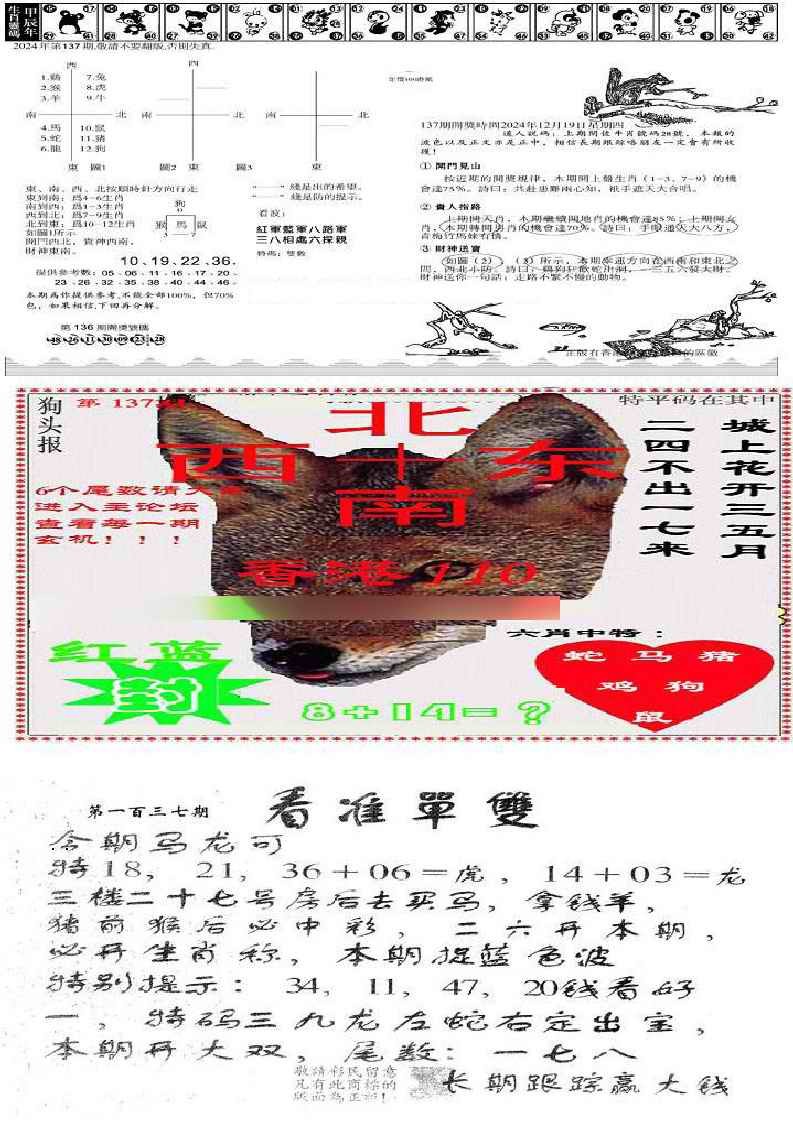 甲辰年
生肖號碼
2024年第137期,敬請不要翻版,否則失真.
西
西
1.鷄 7.兔
2.猴 8.虎
3.羊 9.牛
南 北 南 北 南 北
4.馬 10.鼠
5.蛇 11.猪
6.龍 12.狗
東 圖1 圖2 東 圖3 東
東、南、西、北按順時針方向行走
東到南：爲4—6生肖
南到西：爲1—3生肖
西到北：爲7—9生肖
北到東：爲10—12生肖
如圖1所示
開門西北，貴神西南，
財神東南。
狗
猴 馬 鼠
綫是出的希望。
綫是防的提示。
看波：
紅軍藍軍八路軍
三八相處六探親
特碼：雙數
10、19、22、36.
提供參考數：05·06·11·16·17·20·
23·26·32·35·38·40·44·46·
本期爲作提供參考,不能全部100%，但70%
色，如果相信,下回再分解。
第136期開獎號碼
137期開獎時間2024年12月19日星期四
道人説碼：上期開波牛肖號碼28號，本報的
波色以及正文亦是正中，相信長期跟踪唔朋友一定會有所收
獲！
① 開門見山
按近期的開獎規律，本期開上肖生肖（1—3、7—9）的機
會達75%。詩曰：共赴患難兩心知，衹手遮天大合唱。
② 貴人指路
上期開天肖，本期繼續開地肖的機會達85%；上期開女
肖，本期轉開男肖的機會達70%。詩曰：手眼通天大八方，
青梅竹馬妹有情。
③ 財神送寶
如圖（2）、（3）所示，本期幸運方向在西南和東北之
間，西北小防。詩曰：鷄狗狂歡蛇出洞，一三五六發大財。
財神送你一句話：走路不緊不慢的動物。
狗头报
第 137期
特平码在其中
北
西 十 东
南
城上花开三五月
二四不出一七来
6个尾数请大家
进入主论坛
查看每一期
玄机！！！
香港 110
六肖中特：
红 蓝
封
蛇 马 猪
鸡 狗
鼠
8+14=？
第一百三七期
看准單雙
今期马龙可
特18， 21，36+06=虎，14+03=龙
三楼二十七号房后去买马，拿钱羊，
猪前猴后必中彩，二六开本期，
必开生肖称，本期捉蓝色波
特别提示： 34，11，47，20钱看好
一，特码三九龙左蛇右定出宝，
本期开大双，尾数：一七八
敬請彩民留意
凡有此商标的
版面爲正种！
长期跟踪赢大钱